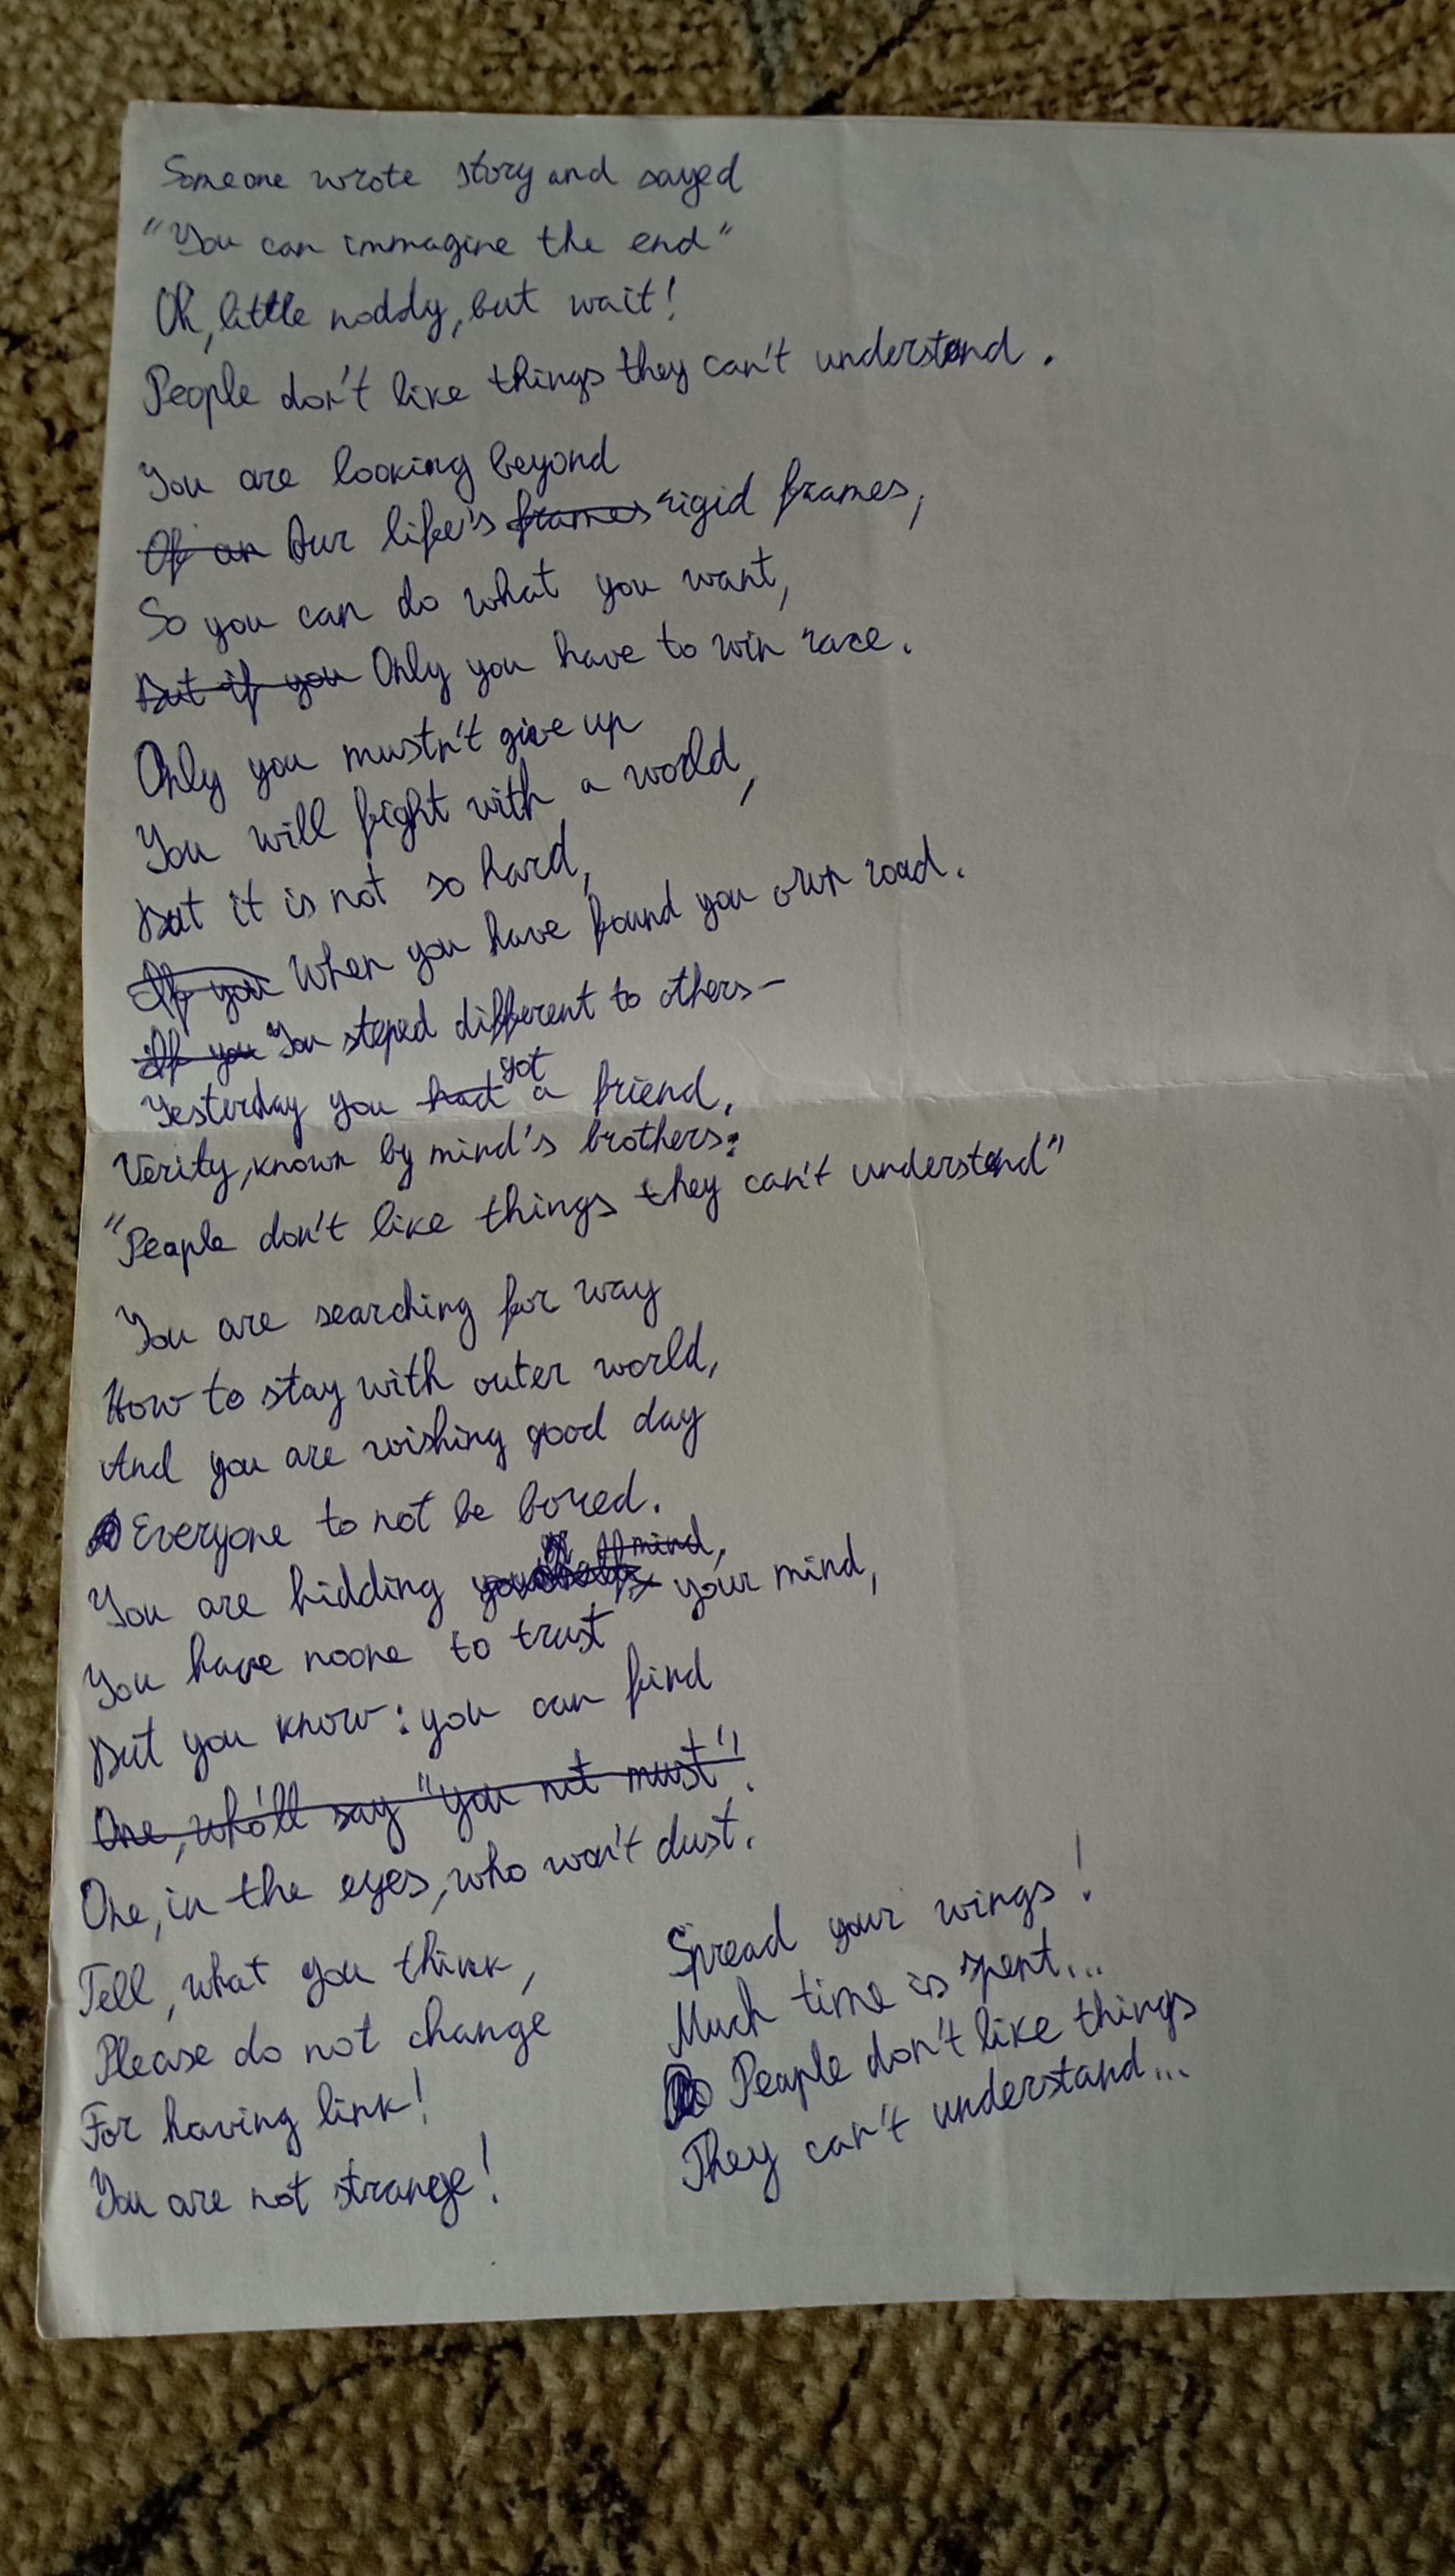 Someone wrote story and sayed
"You can immagine the end"
Oh, little noddy, but wait!
People don't like things they can't understand.
You are looking beyond
Of an Our life's frames rigid frames,
So you can do what you want,
But if you Only you have to win race.
Only you mustn't give up
You will fight with a world,
But it is not so hard,
If you When you have found you own road.
If you You steped different to others-
Yesterday you had got a friend,
Verity, known by mind's brothers:
"People don't like things they can't understand"
You are searching for way
How to stay with outer world,
And you are wishing good day
Everyone to not be bored.
You are hidding mind, your mind,
You have noone to trust
But you know: you can find
One, who'll say "you not must"!
One, in the eyes, who won't dust.
Tell, what you think,
Please do not change
For having link!
You are not strange!
Spread your wings!
Much time is spent...
People don't like things
They can't understand...